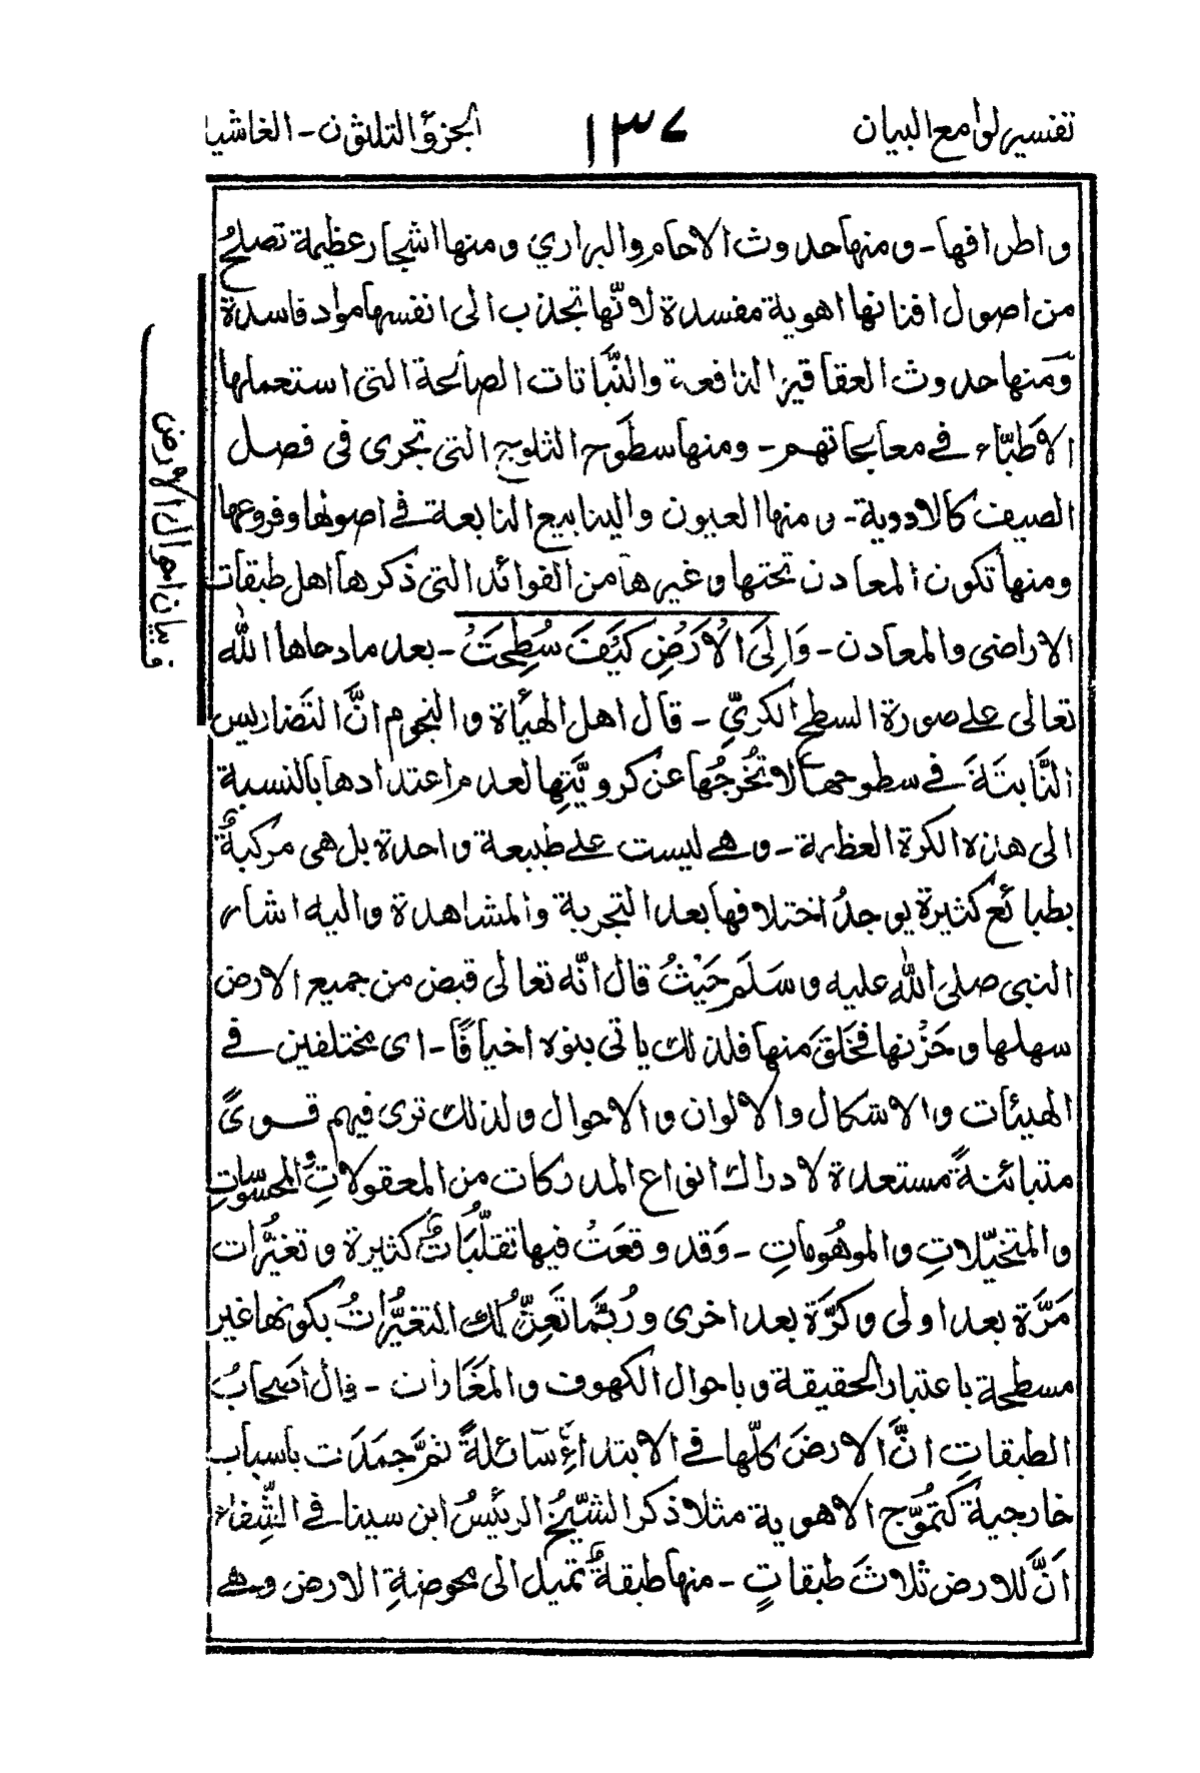 تفسير لوامع البيان
١٣٧
الجزؤ الثلثون - الغاشيا
واطرافها - ومنها حدوث الاحام والبراري ومنها اشجار عظيمة تصلحُ
من اصول افنانها اهوية مفسدة لانّها تجذب الى انفسها مواد فاسدة
وَمنها حدوث العقاقير النافعة والنَّباتات الصالحة التى استعملها
الاطبّاء فى معالجاتهم - ومنها سطوح الثلوج التى تجرى فى فصل
الصيف كالاودية - ومنها العيون والينابيع النابعة فى اصولها وفروعها
ومنها تكون المعادن تحتها وغيرها من الفوائد التى ذكرها اهل طبقات
الاراضى والمعادن - وَاِلَى الْاَرْضِ كَيْفَ سُطِحَتْ - بعد ما دحاها الله
تعالى على صورة السطح الكريّ - قال اهل الهيأة والنجوم انَّ التَضاريس
النَّابتَةَ فى سطوحها لا تُخرجُها عن كرويَّتِها لعدم اعتدادها بالنسبة
الى هذه الكرة العظيمة - وهى ليست على طبيعة واحدة بل هى مركبةٌ
بطبائع كثيرة يوجدُ اختلافها بعد التجربة والمشاهدة واليه اشار
النبى صلى الله عليه وسَلَم حَيْثُ قال انّه تعالى قبض من جميع الارض
سهلها وحَزْنها فخَلَقَ منها فلذلك ياتى بنوه اخيافًا - اى مختلفين فى
الهيئات والاشكال والالوان والاحوال ولذلك ترى فيهم قوىً
متبائنةً مستعدة لادراك انواع المدركات من المعقولاتِ والمحسوساتِ
والمتخيّلاتِ والموهُوماتِ - وَقد وقعَتْ فيها تقلّبَاتٌ كثيرة وتغيُّرات
مَرَّة بعد اولى وكَرَّة بعد اخرى ورُبَّما تَعِنُّ لك التغيُّراتُ بكونها غير
مسطحة باعتبار الحقيقة وباحوال الكهوف والمَغَارات - قال اصحابُ
الطبقاتِ انَّ الارضَ كلّها فى الابتداءِ سَائلةً ثمَّ جمَدَت باسباب
خارجيةٌ كتموّج الاهوية مثلا ذكر الشّيخُ الرئيسُ ابن سينا فى الشِّفاء
اَنَّ للارض ثلاثَ طبقاتٍ - منها طبقةٌ تميل الى محوضةِ الارض وهى
ف بيان احوال الارض